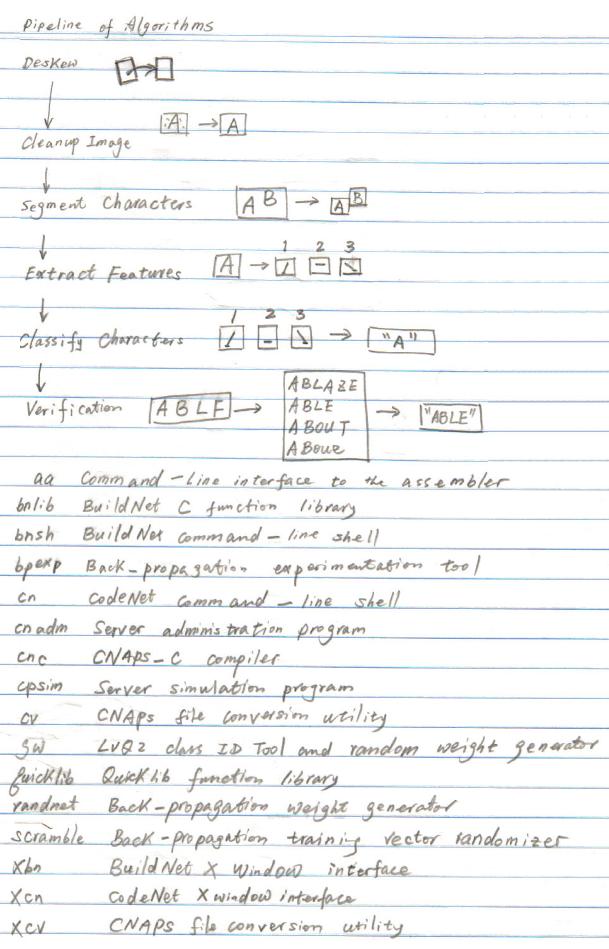 Pipeline of Algorithms
Deskew
A → A
Cleanup Image
Segment Characters A B → A B
1 2 3
Extract Features A →
1 2 3
Classify Characters → "A"
Verification ABLF → ABLAZE ABLE ABOUT ABOVE → "ABLE"
aa Command-Line interface to the assembler
bnlib BuildNet C function library
bnsh BuildNet command-line shell
bpexp Back-propagation experimentation tool
cn CodeNet command-line shell
cnadm Server administration program
cnc CNAPS-C compiler
cpsim Server simulation program
cv CNAPs file conversion utility
gw LVQ2 class ID Tool and random weight generator
Quicklib Quicklib function library
randnet Back-propagation weight generator
scramble Back-propagation training vector randomizer
Xbn BuildNet X Window interface
Xcn CodeNet X window interface
Xcv CNAPS file conversion utility